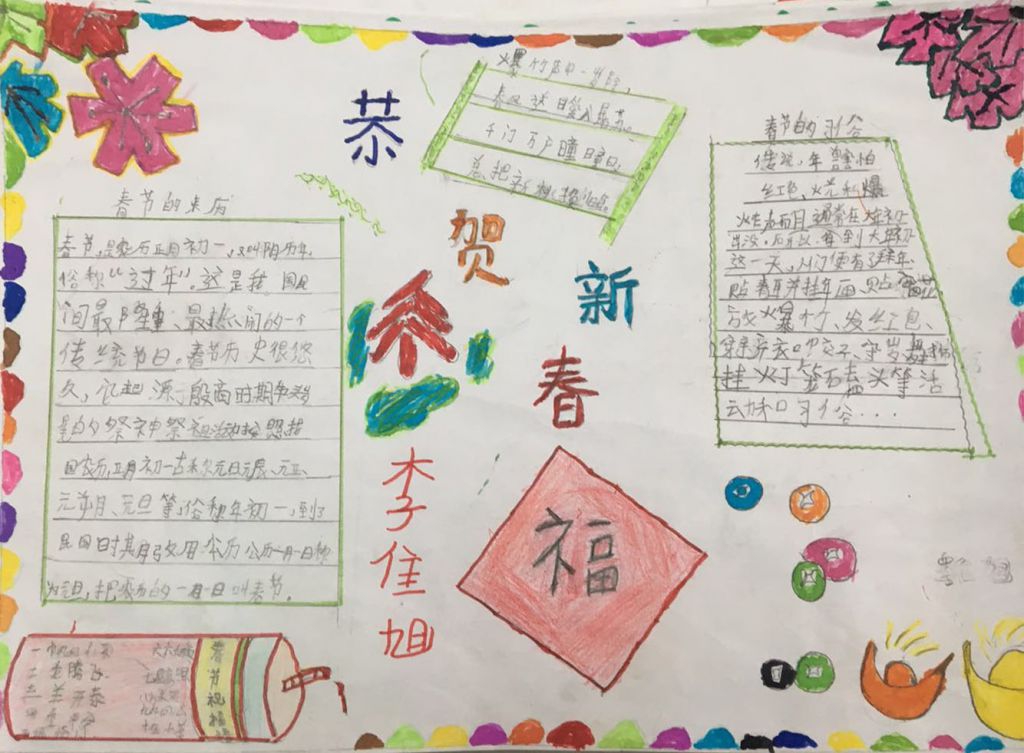 恭
贺
新
春
李佳旭
福
爆竹声中一岁除,
春风送日暖入屠苏。
千门万户瞳瞳日,
总把新桃换旧
春节的来历
春节,是农历正月初一,又叫阴历年,
俗称“过年”。这是我国民
间最隆重、最热闹的一个
传统节日。春节历史很悠
久,它起源于殷商时期年头岁
尾的祭神祭祖活动按照我
国农历,正月初一古称元日元辰、元正、
元年月、元旦等,俗称年初一,到了
民国时其月改用公历公历一月一日称
为元旦,把农历的一月一日叫春节。
春节的习俗
传说,年兽害怕
红色、火光和爆
炸声而且通常在大年初
出没,所以,每到大年初
这一天,人们便有了拜年、
贴春联挂年画、贴窗花
放爆竹、发红包、
穿新衣吃饺子、守岁舞狮
挂灯笼磕头等活
动和习俗....
春节祝福
龙腾
三羊开泰